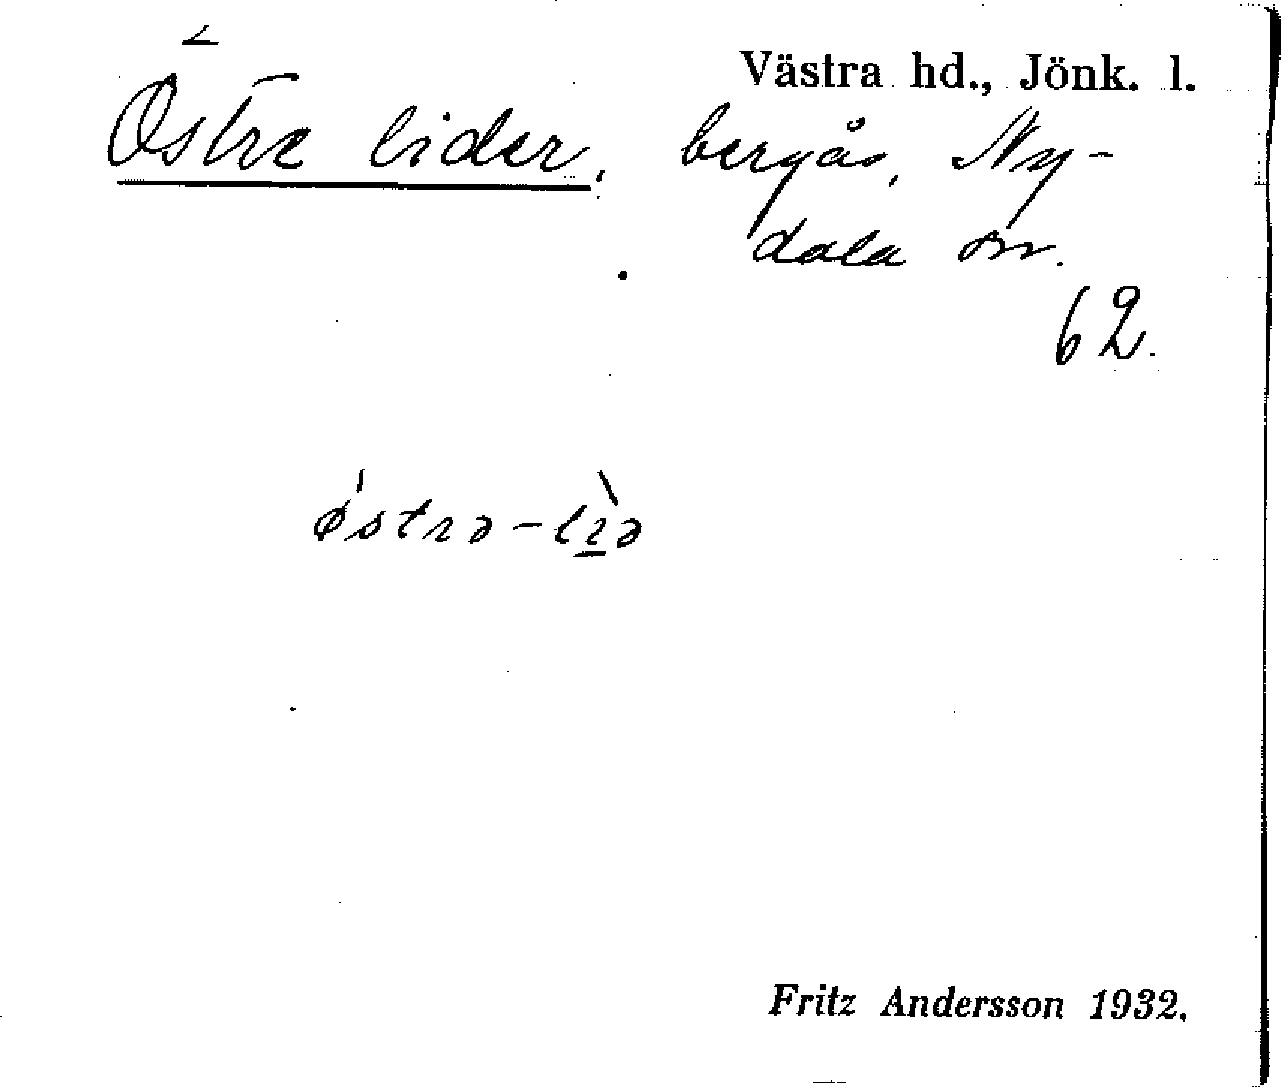 Västra hd., Jönk. l.
Östra lider, bergås, Ny-
dala sn.
62.
östrə-lıə
Fritz Andersson 1932.